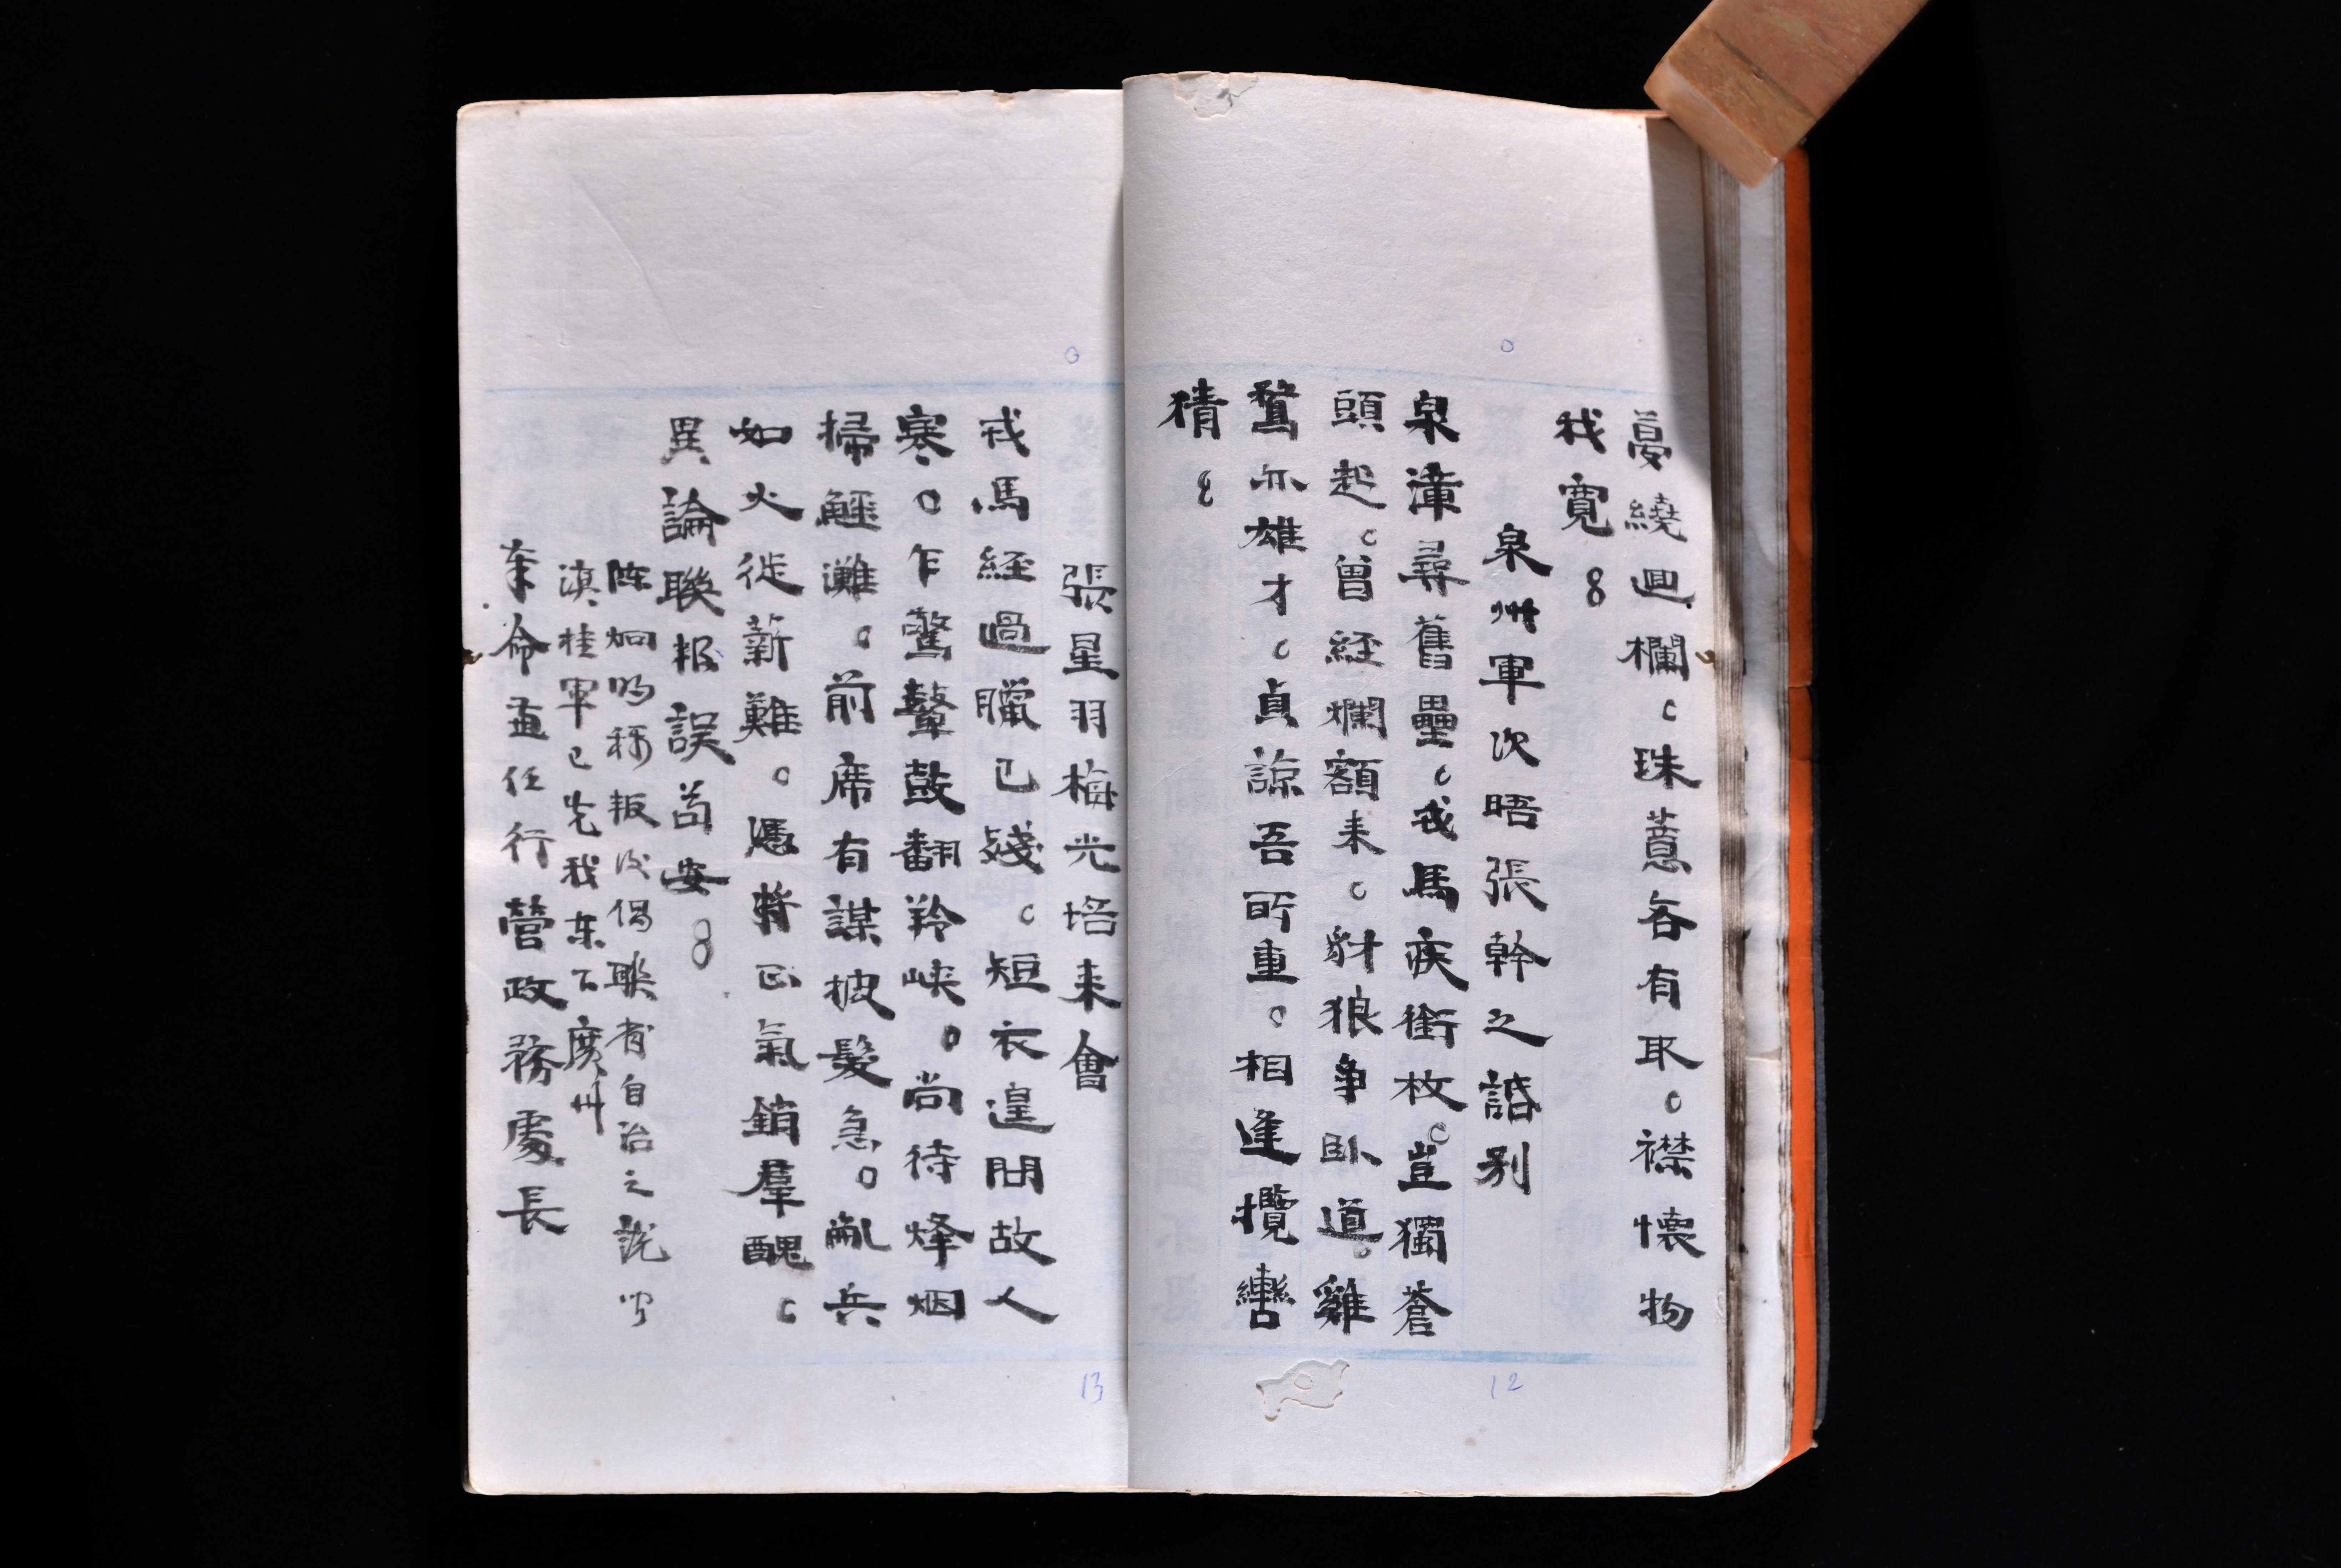 夢繞迴欄。珠薏各有取。襟懷物
我寬。
泉州軍次晤張幹之話別
泉漳尋舊壘。我馬疾銜枚。豈獨蒼
頭起。曾經爛額来。豺狼争臥道。雞
鶩亦雄才。貞諒吾所重。相逢攬轡
猜。
12
張星羽梅光培来會
戎馬経過臘已殘。短衣遑問故人
寒。乍驚鼙鼓翻羚峽。尚待烽烟
掃鱷灘。前席有謀披髮急。亂兵
如火徙薪難。憑將正氣銷羣醜。
異論聯报誤苟安。
陈炯明称叛次倡联省自治之說
滇桂軍已先我东下廣州
奉命兼任行營政務處長
13